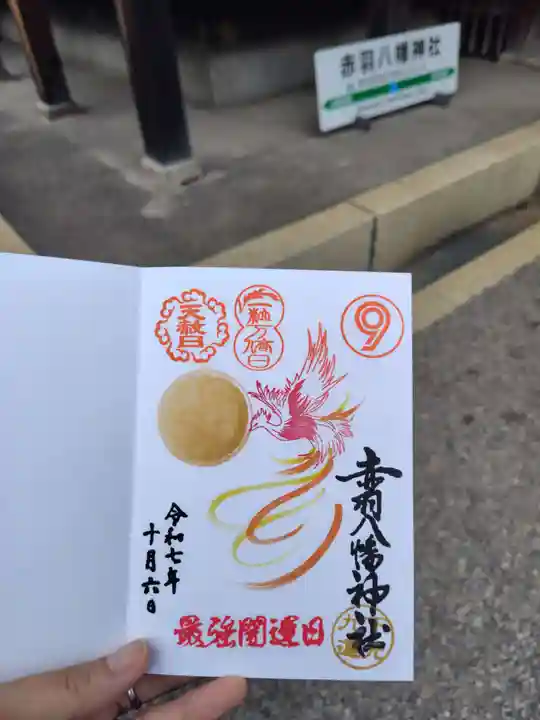 赤羽八幡神社
天赦日
一粒万倍日
9
赤羽八幡神社
令和七年
十月六日
最強開運日